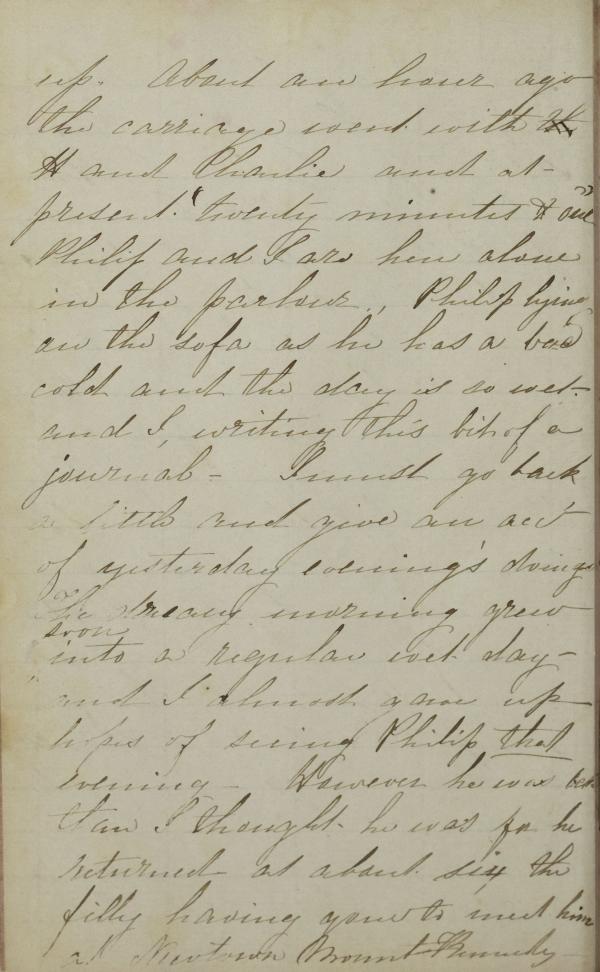 up. About an hour ago
the carriage went with H
H and Charlie and at
present "twenty minutes to one"
Philip and I are here alone
in the parlour, Philip lying
on the sofa as he has a bad
cold and the day is so wet
and I, writing this bit of a
journal - I must go back
a little and give an acct
of yesterday evening's doings
The dreary morning grew
soon
into a regular wet day -
and I almost gave up
hopes of seeing Philip that
evening - However he was
than I thought he was for he
returned at about six the
filly having gone to meet him
at Newtown Mount Kennedy -